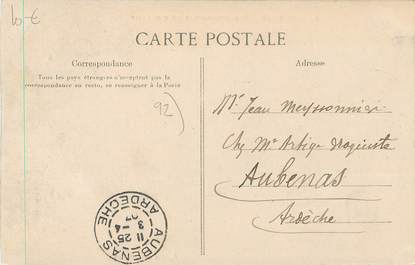 10-€
CARTE POSTALE
Correspondance
Tous les pays étrangers n'acceptent pas la
correspondance au recto, se renseigner à la Poste
Adresse
92)
Mr Jean Meyssonnier
Chez Mr Artige
Aubenas
Ardèche
AUBENAS
11 25
3 -4
07
ARDECHE